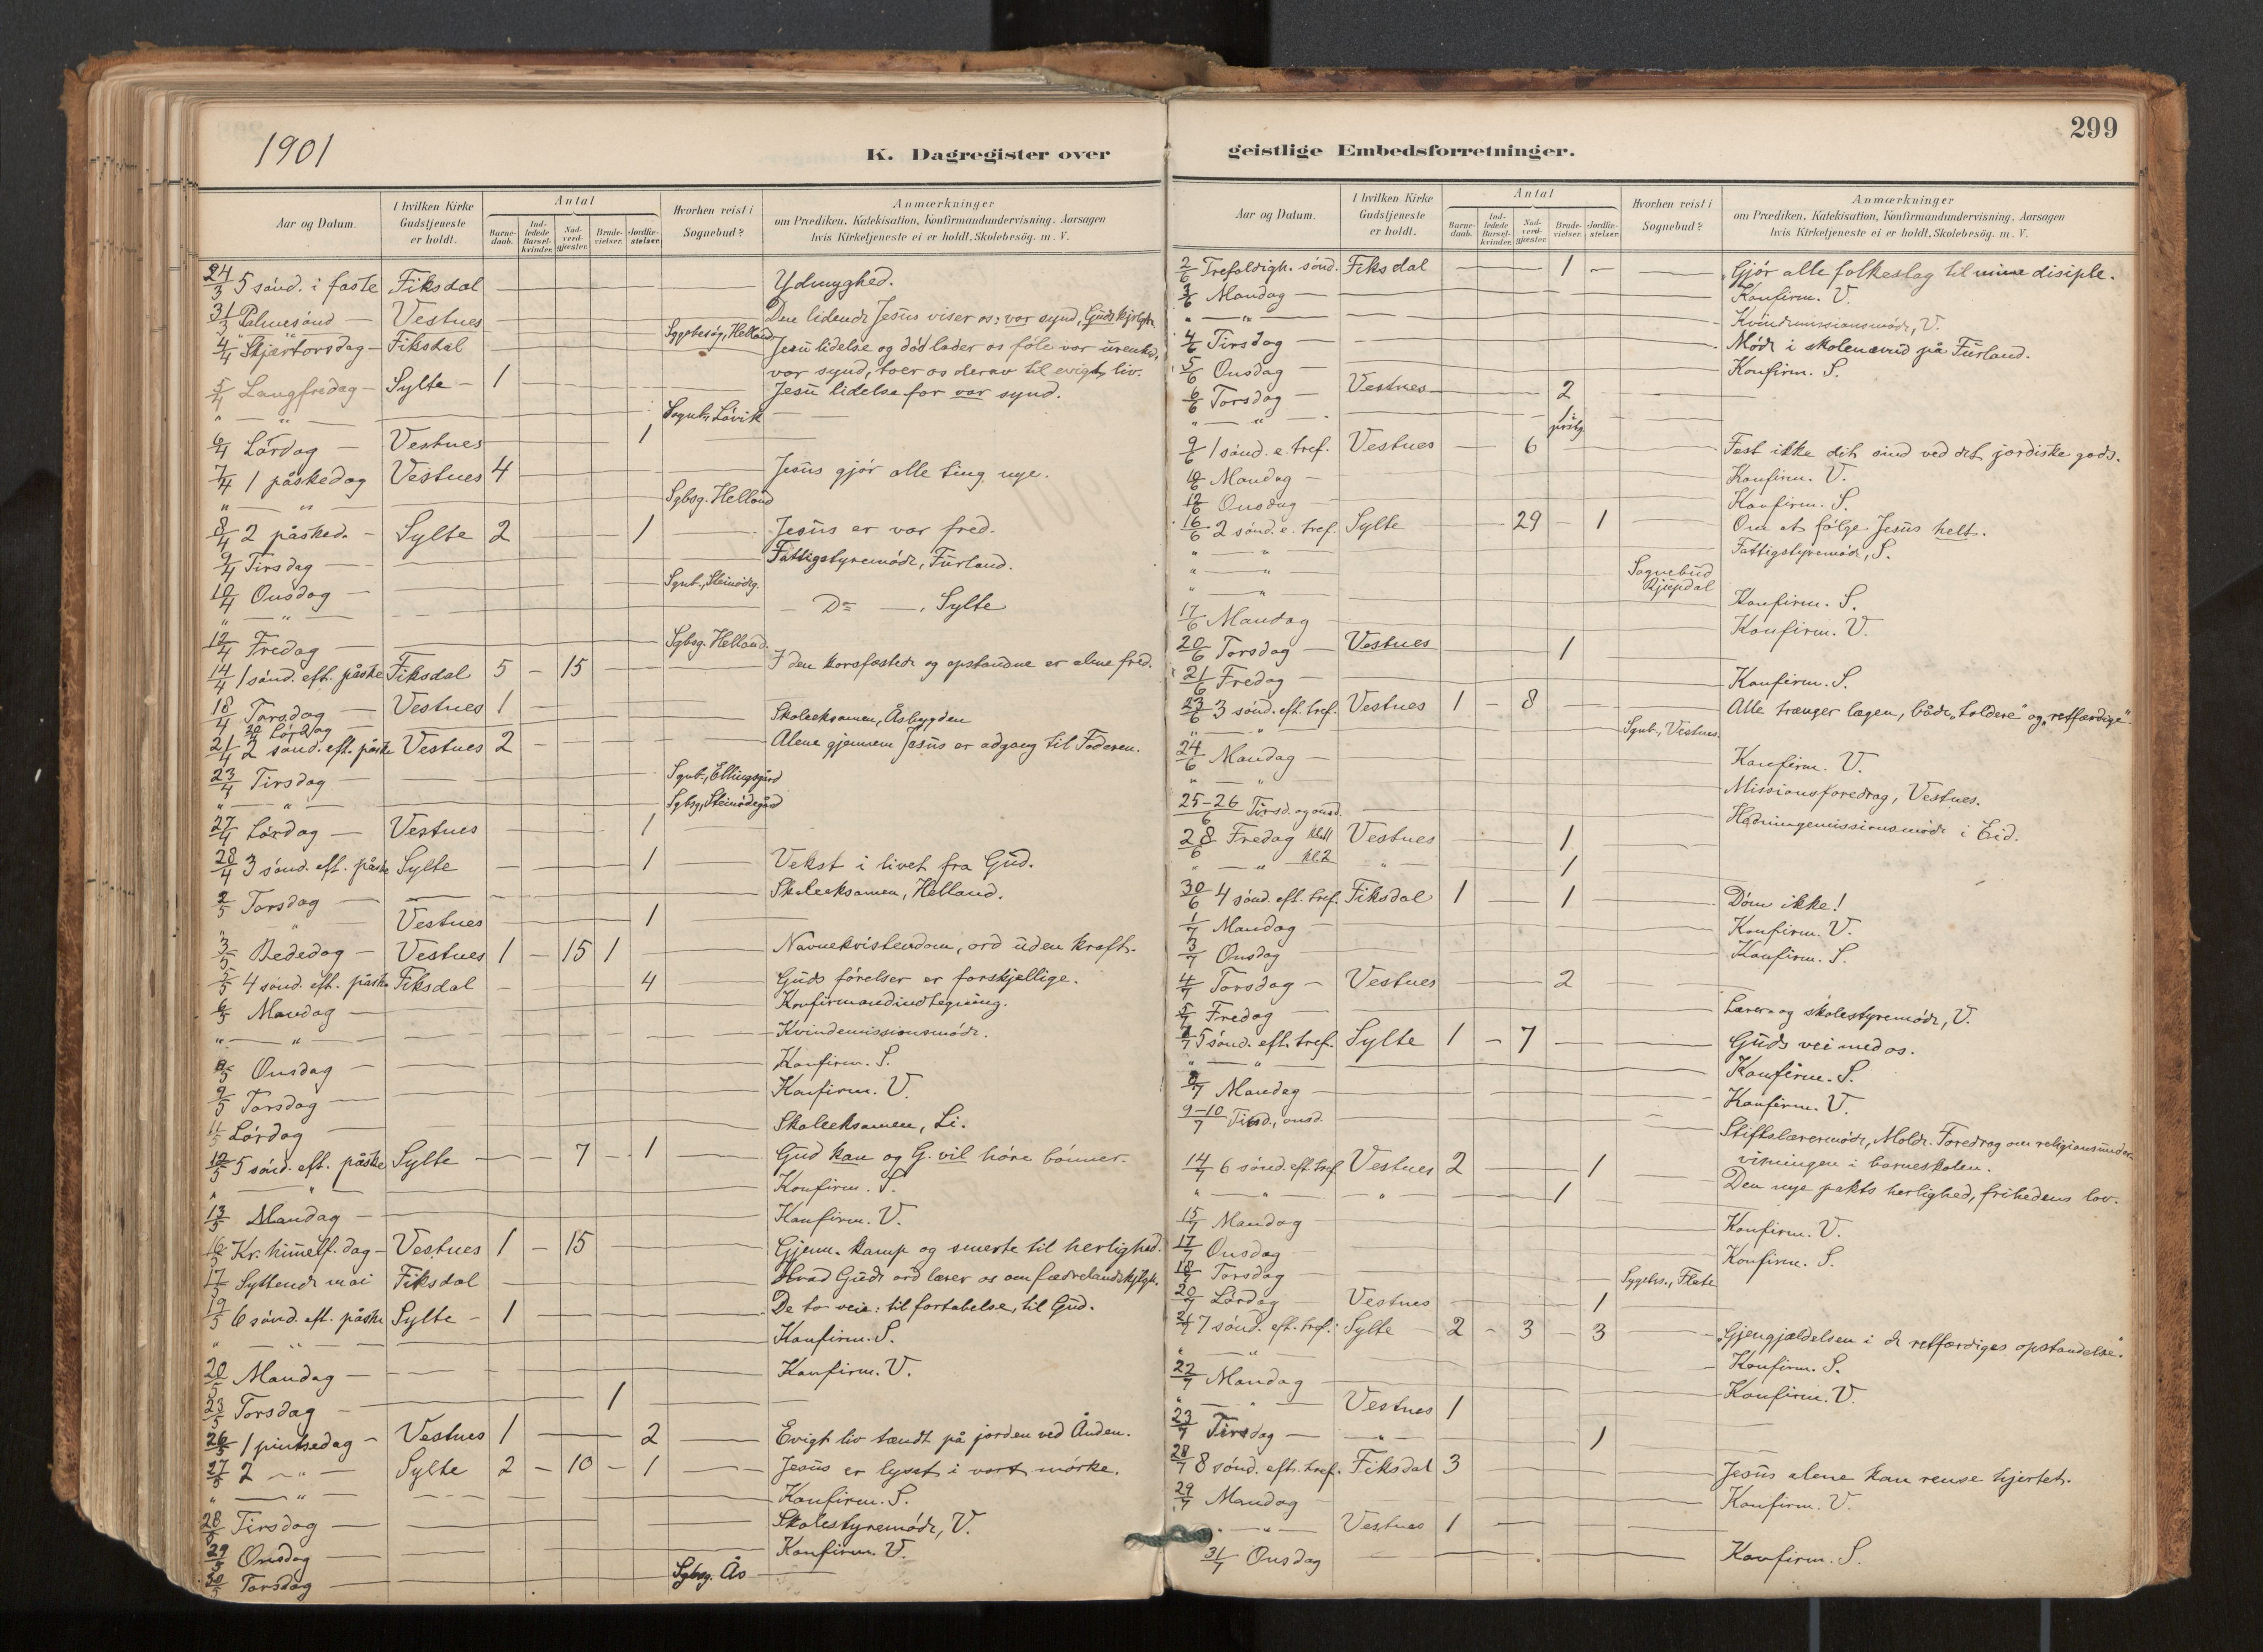 1901
K. Dagregister over
Aar og Datum.
I hvilken Kirke Gudstjeneste er holdt.
Antal
Barne-daab.
Ind-ledede Barsel-kvinder.
Nad-verd-gjester.
Brude-vielser.
Jordfæ-stelser.
Hvorhen reist i Sognebud?
Anmærkninger
om Prædiken, Katekisation, Konfirmandundervisning, Aarsagen
hvis Kirketjeneste ei er holdt, Skolebesög. m. V.
24/3 5 sønd. i faste Fiksdal — Ydmyghed.
31/3 Palmesønd — Vestnes — Den lidende Jesus viser os: vor synd, Guds kjrlgh.
" " Sygebesøg, Helland
4/4 Skjærtorsdag — Fiksdal — Jesu lidelse og død lader os føle vor urenhed,
vor synd, toer os derav til evigt liv.
5/4 Langfredag — Sylte — 1 Jesu lidelse for vor synd.
" — " Sognb., Løvik —
6/4 Lørdag — Vestnes 1 —
7/4 1 påskedag Vestnes 4 Jesus gjør alle ting nye.
" — " — Sgbsg. Helland
8/4 2 påsked. — Sylte 2 — 1 — Jesus er vor fred.
9/4 Tirsdag — Fattigstyremøde, Furland.
10/4 Onsdag — Sgnb., Steinødeg.
" — " — — Do —, Sylte
12/4 Fredag — Sgbsg. Helland.
14/4 1 sønd. eft. påske Fiksdal 5 — 15 — I den korsfæstede og opstandne er alene fred.
18/4 Torsdag — Vestnes 1 —
20 Lørdag Skoleeksamen, Åsbygden
21/4 2 sønd. eft. påske Vestnes 2 — Alene gjennem Jesus er adgang til Faderen.
23/4 Tirsdag — Sgnb., Ellingsgård
" — " — Sgbsg., Steinødegård
27/4 Lørdag — Vestnes 1
28/4 3 sønd. eft. påske Sylte 1 — Vekst i livet fra Gud.
2/5 Torsdag — Skoleeksamen, Helland.
" " Vestnes 1 —
3/5 Bededag — Vestnes 1 — 15 1 — Navnekristendom, ord uden kraft.
5/5 4 sønd. eft. påske Fiksdal — 4 — Guds førelser er forskjellige.
6/5 Mandag — Konfirmandindtegning.
" — " — Kvindemissionsmøde.
8/5 Onsdag — Konfirm. S.
9/5 Torsdag — Konfirm. V.
11/5 Lørdag — Skoleeksamen, Li.
12/5 5 sønd. eft. påske Sylte — 7 — 1 — Gud kan og G. vil høre bønner.
" — " — Konfirm. S.
13/5 Mandag — Konfirm. V.
16/5 Kr. himmelf. dag — Vestnes 1 — 15 — Gjenn. kamp og smerte til herlighed.
17/5 Syttende mai Fiksdal — Hvad Guds ord lærer os om fædrelandskjlgh.
19/5 6 sønd. eft. påske Sylte — 1 — De to veie: til fortabelse, til Gud.
" — " — Konfirm. S.
20/5 Mandag — Konfirm. V.
23/5 Torsdag — 1 —
26/5 1 pintsedag — Vestnes 1 — 2 — Evigt liv tændt på jorden ved Ånden.
27/5 2 — " — Sylte 2 — 10 — 1 — Jesus er lyset i vort mørke.
" — " — Konfirm. S.
28/5 Tirsdag — Skolestyremøde, V.
29/5 Onsdag — Konfirm. V.
30/5 Torsdag — Sgbsg. Ås —
299
geistlige Embedsforretninger.
Aar og Datum.
I hvilken Kirke Gudstjeneste er holdt.
Antal
Barne-daab.
Ind-ledede Barsel-kvinder.
Nad-verd-gjester.
Brude-vielser.
Jordfæ-stelser.
Hvorhen reist i Sognebud?
Anmærkninger
om Prædiken, Katekisation, Konfirmandundervisning, Aarsagen
hvis Kirketjeneste ei er holdt, Skolebesög. m. V.
2/6 Trefoldigh. sønd. Fiksdal — 1 — Gjør alle folkeslag til mine disiple.
3/6 Mandag — Konfirm. V.
" — " — Kvindemissionsmøde, V.
4/6 Tirsdag — Møde i skolenævnd på Furland.
5/6 Onsdag — Konfirm. S.
6/6 Torsdag — Vestnes — 2 —
" — " 1
9/6 1 sønd. e. tref. Vestnes — 6 — Fest ikke dit sind ved det jordiske gods.
10/6 Mandag — Konfirm. V.
12/6 Onsdag — Konfirm. S.
16/6 2 sønd. e. tref. Sylte — 29 — 1 — Om at følge Jesus helt.
" — " Fattigstyremøde, S.
" — " Sognebud Rjupdal
" — " Konfirm. S.
17/6 Mandag — Konfirm. V.
20/6 Torsdag — Vestnes — 1
21/6 Fredag — Konfirm. S.
23/6 3 sønd. eft. tref. Vestnes 1 — 8 — Alle trænger lægen, både „toldere" og „retfærdige".
" — " Sgnb., Vestnes.
24/6 Mandag — Konfirm. V.
" — " Missionsforedrag, Vestnes.
25–26/6 Tirsd. og onsd. — Hedningemissionsmøde i Eid.
28/6 Fredag kl. 11 Vestnes — 1
" — " kl. 2 " — 1
30/6 4 sønd. eft. tref. Fiksdal 1 — 1 — Døm ikke!
1/7 Mandag — Konfirm. V.
3/7 Onsdag — Konfirm. S.
4/7 Torsdag — Vestnes — 2
5/7 Fredag — Lærer- og skolestyremøde, V.
7/7 5 sønd. eft. tref. Sylte 1 — 7 — Guds vei med os.
" — " Konfirm. S.
8/7 Mandag — Konfirm. V.
9–10/7 Tirsd., onsd. — Stiftslærermøde, Molde. Foredrag om religionsunder-
visningen i barneskolen.
14/7 6 sønd. eft. tref. Vestnes 2 — 1 — Den nye pakts herlighed, frihedens lov.
" — " — " — 1
15/7 Mandag — Konfirm. V.
17/7 Onsdag — Konfirm. S.
18/7 Torsdag — Sygebs., Flate
20/7 Lørdag Vestnes — 1
21/7 7 sønd. eft. tref. Sylte — 2 — 3 — 3 — „Gjengjældelsen i de retfærdiges opstandelse".
" — " Konfirm. S.
22/7 Mandag — Konfirm. V.
" — " — Vestnes 1 —
23/7 Tirsdag — " — 1 —
28/7 8 sønd. eft. tref. Fiksdal 3 — Jesus alene kan rense hjertet.
29/7 Mandag — Konfirm. V.
" — " — Vestnes 1 —
31/7 Onsdag — Konfirm. S.